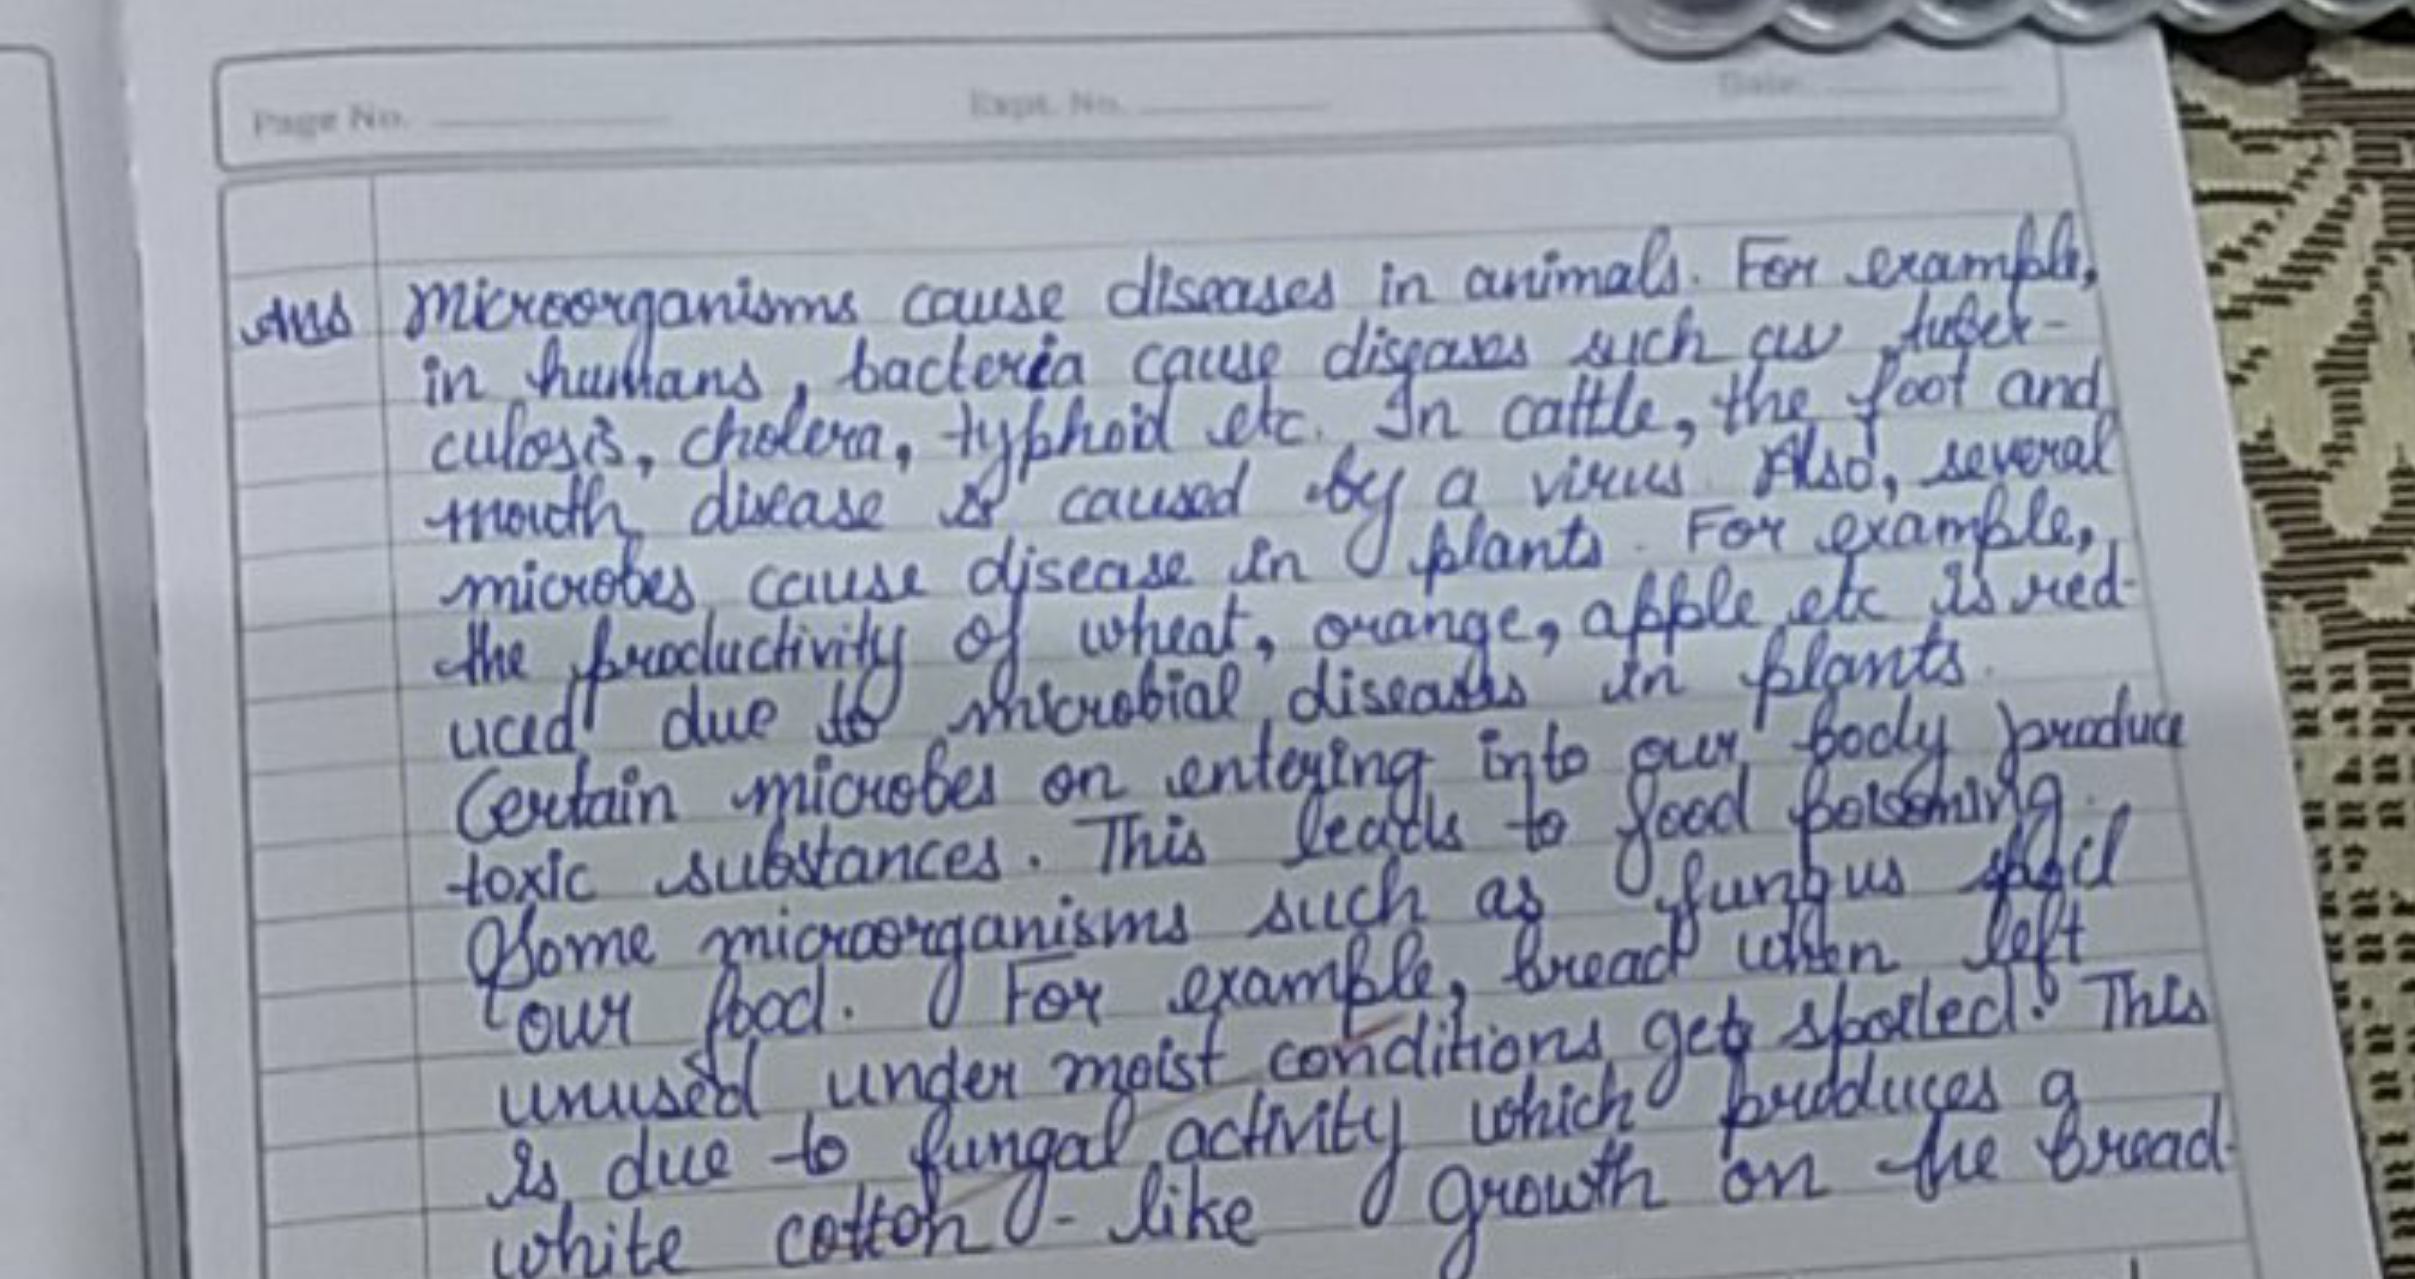 Page No.
Expt. No.
Date:
Ans Microorganisms cause diseases in animals. For example,
in humans, bacteria cause diseases such as tuber-
culosis, cholera, typhoid etc. In cattle, the foot and
mouth disease is caused by a virus. Also, several
microbes cause disease in plants. For example,
the productivity of wheat, orange, apple etc is red-
uced due to microbial diseases in plants.
Certain microbes on entering into our body produce
toxic substances. This leads to food poisoning.
Some microorganisms such as fungus spoil
our food. For example, bread when left
unused under moist conditions gets spoiled. This
is due to fungal activity which produces a
white cotton-like growth on the bread.